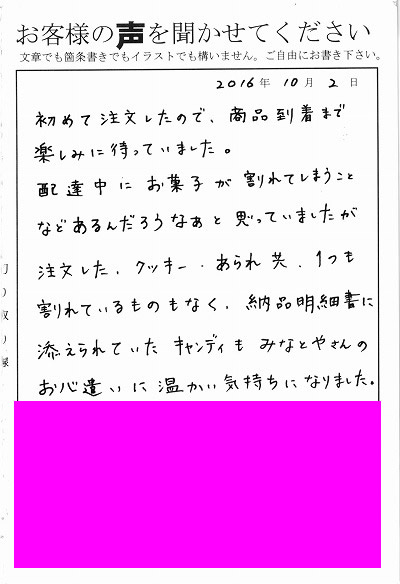 お客様の声を聞かせてください
文章でも箇条書きでもイラストでも構いません。ご自由にお書き下さい。
2016年 10月 2日
初めて注文したので、商品到着まで
楽しみに待っていました。
配達中にお菓子が割れてしまうこと
などあるんだろうなぁと思っていましたが
注文した、クッキー・あられ共、1つも
割れているものもなく、納品明細書に
添えられていたキャンディもみなとやさんの
お心遣いに温かい気持ちになりました。